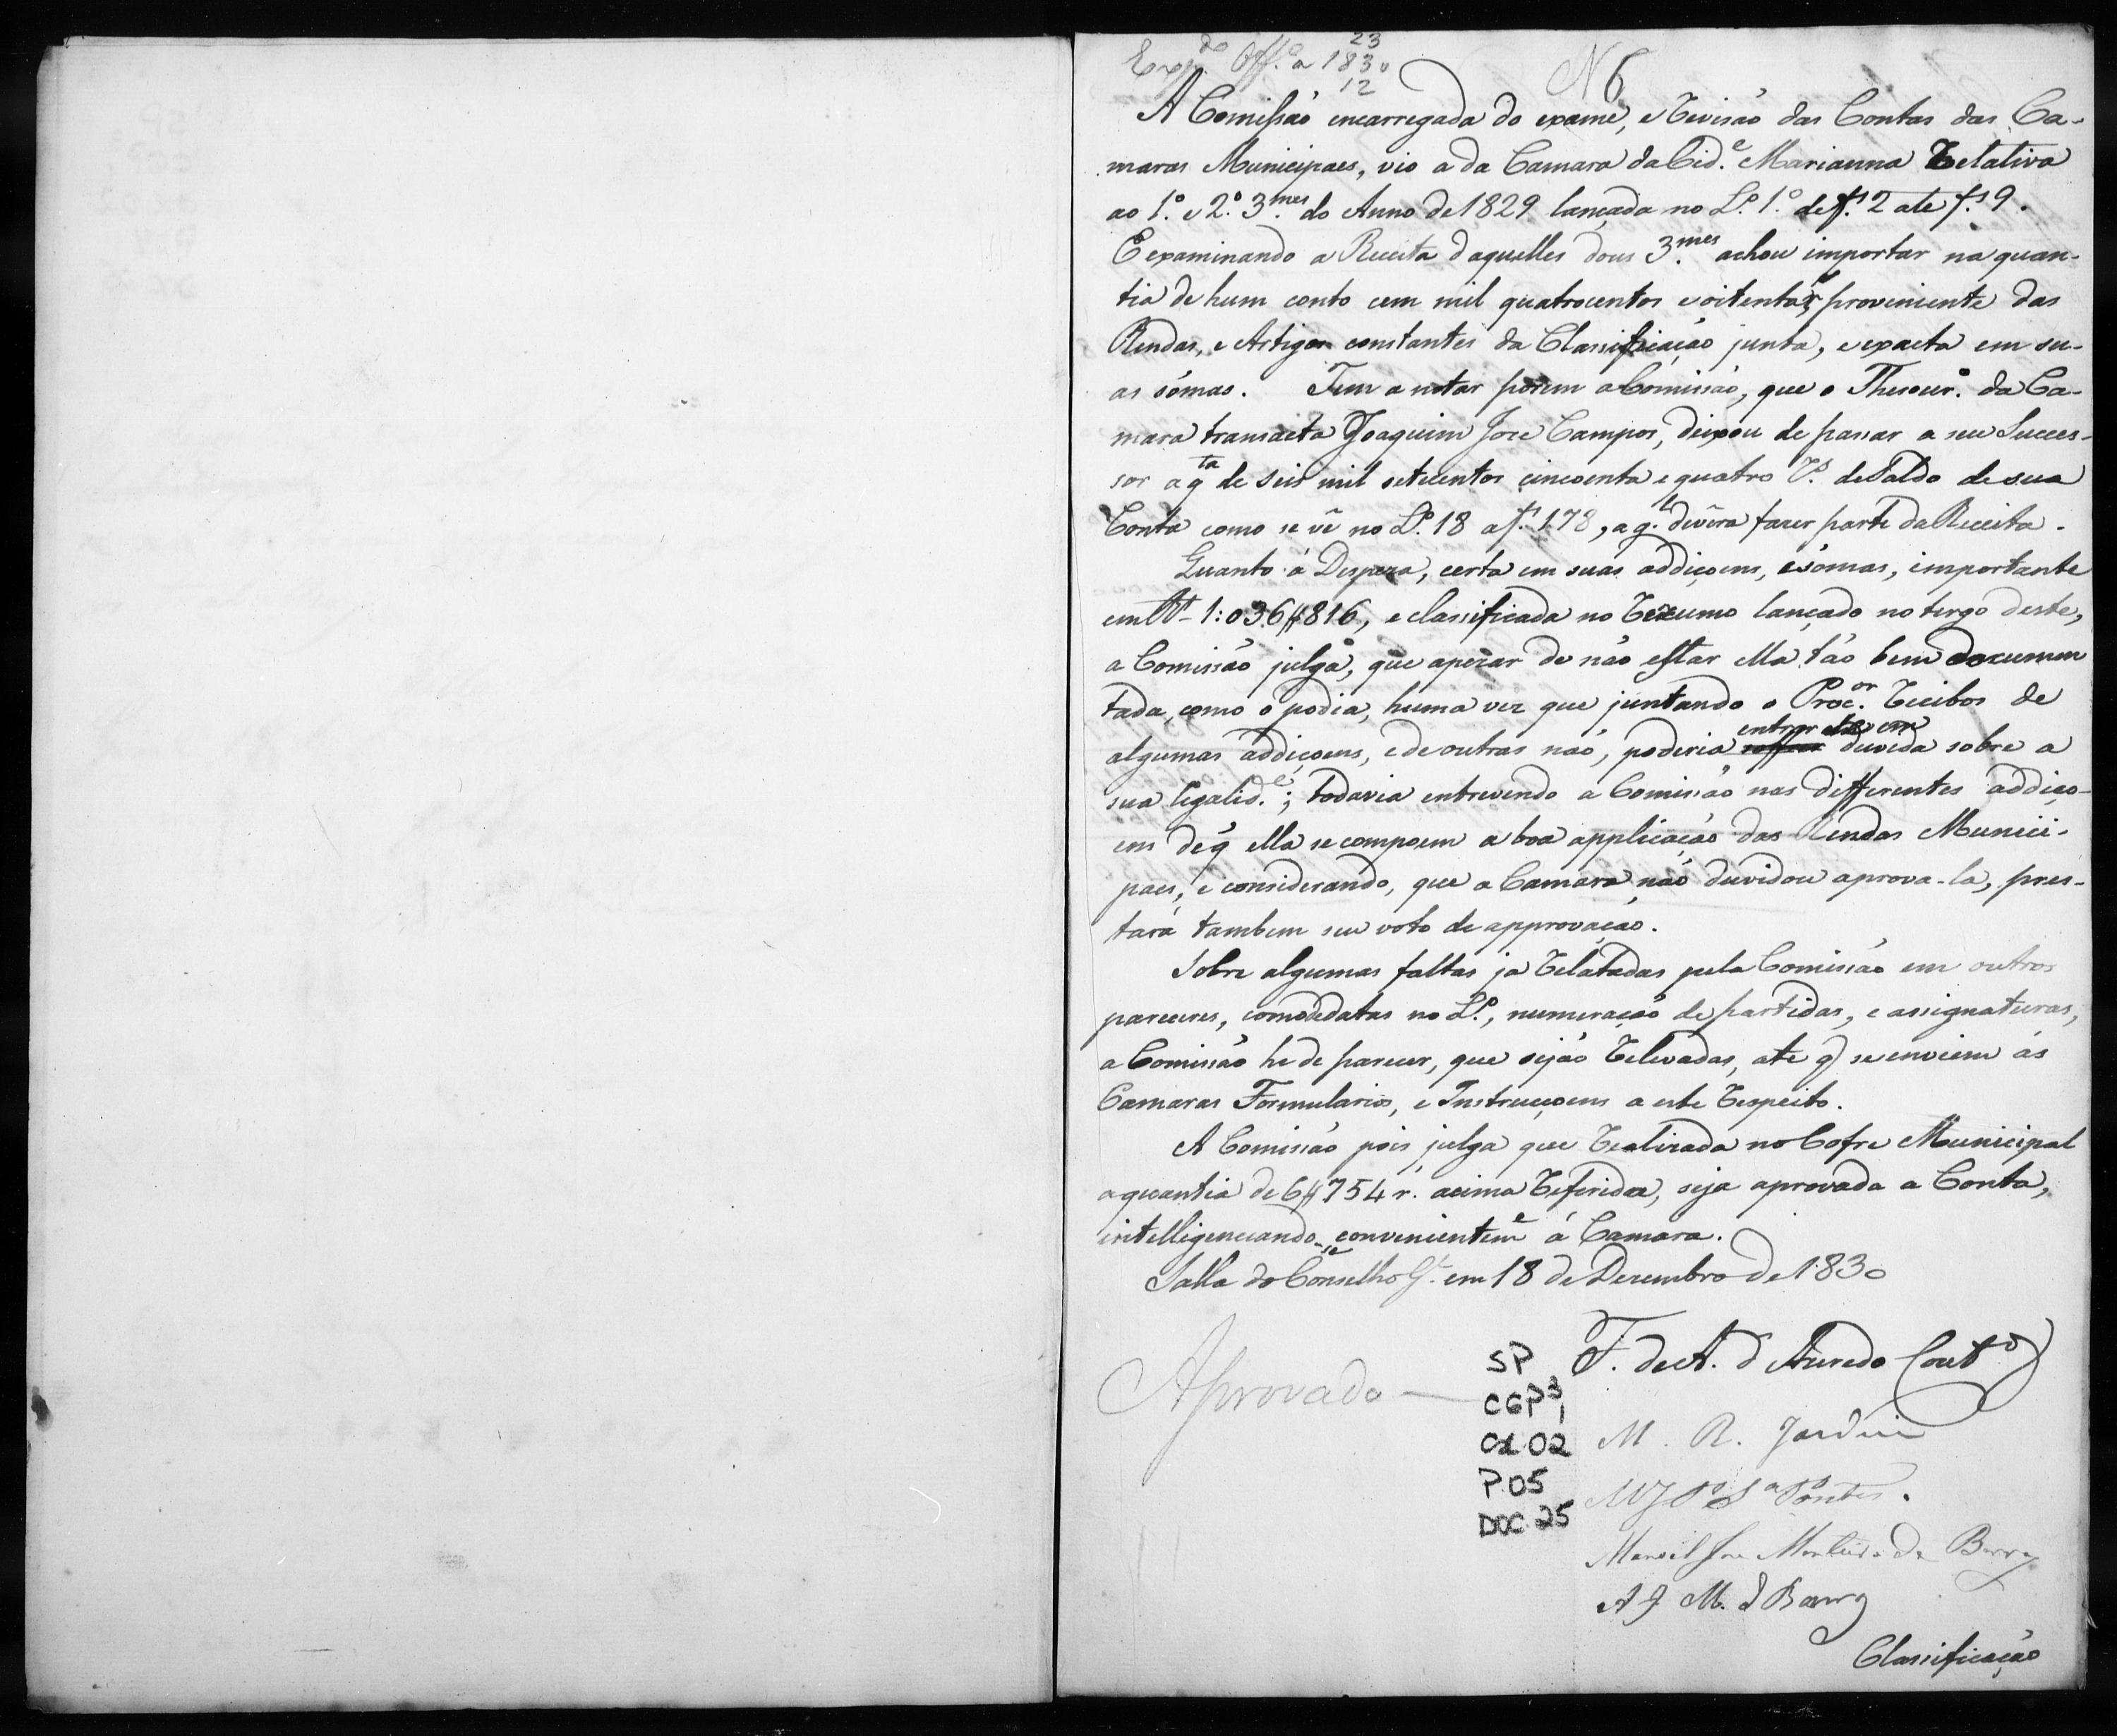 Exp.do Off.º a 23 1830 12
N 6
A Comissão encarregada do exame, e revisão das Contas das Ca-
maras Municipaes, vio a da Camara da Cid.e Marianna relativa
ao 1.º e 2.º 3.mes do Anno de 1829 lançada no L.º 1.º de f.s 2 ate f.s 9.
E examinando a Receita daquelles dous 3.mes achou importar na quan-
tia de hum conto cem mil quatrocentos e oitenta rs proveniente das
Rendas, e Artigos constantes da Classificação junta, e exacta em su-
as sómas. Tem a notar porem a Comissão, que o Thesour.º da Ca-
mara transacta Joaquim Jose Campos, deixou de passar a seu Succes-
sor a q.ta de seis mil setecentos cincoenta e quatro r.s de Saldo de sua
Conta como se vê no L.º 18 a f.s 178, a q.l devêra fazer parte da Receita.
Quanto á Despeza, certa em suas addiçoens, e sómas, importante
em R.s 1:036$816, e classificada no rezumo lançado no verso deste,
a Comissão julga, que apezar de não estar ella tão bem documen
tada, como o podia, huma vez que juntando o Proc.or recibos de
algumas addiçoens, e de outras não, poderia entrar em duvida sobre a
sua legalid.e; todavia entrevendo a Comissão nas differentes addiço-
ens de q̃ ella se compoem a boa applicação das Rendas Munici-
paes, e considerando, que a Camara não duvidou aprova-la, pres-
tará tambem seu voto de approvação.
Sobre algumas faltas ja relatadas pela Comissão em outros
pareceres, como de datas no L.º, numeração de partidas, e assignaturas,
a Comissão he de parecer, que sejão relevadas, ate q̃ se enviem ás
Camaras Formularios, e Instrucçoens a este respeito.
A Comissão pois julga que realizada no Cofre Municipal
a quantia de 6$754 r. acima referida, seja aprovada a Conta,
intelligenciando-se convenientem.e á Camara.
Salla do Conselho G.l em 18 de Dezembro de 1830
Aprovado
SP
CGP 3
1
CX.02
P.05
DOC.25
F. de A. d'Azeredo Cout.º
M. R. Jardim
Manoel Jose Monteiro de Barros
A J M. d Barros
Classificação